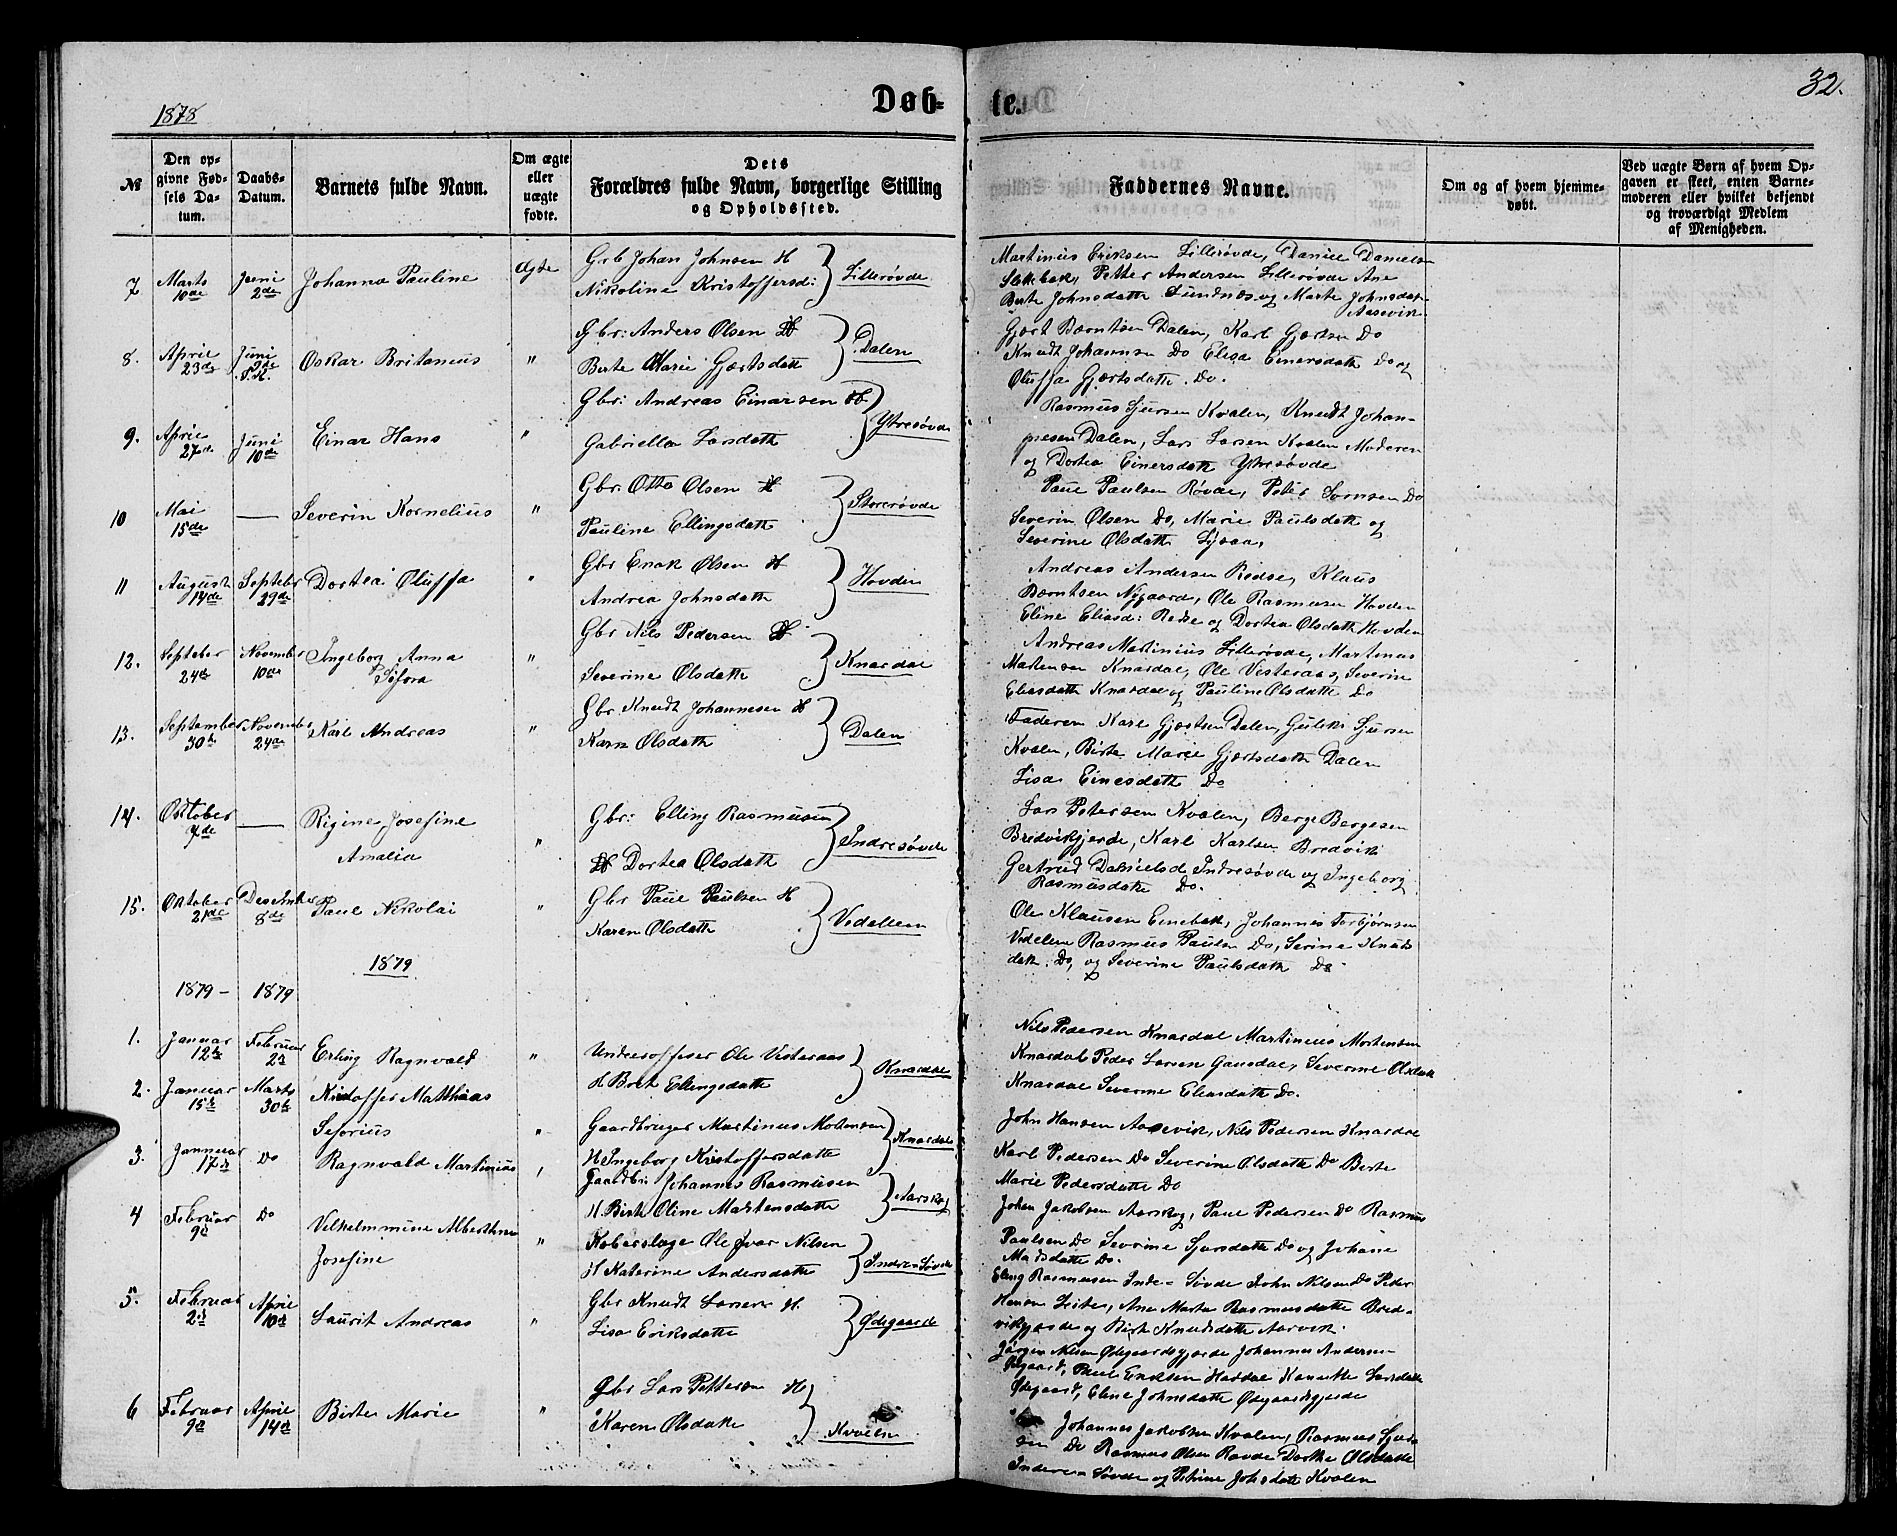 32.
1878
Døb-
te.
№
Den op-
givne Fød-
sels Da-
tum.
Daabs-
Datum.
Barnets fulde Navn.
Om ægte
eller
uægte
fødte.
Dets
Forældres fulde Navn, borgerlige Stilling
og Opholdssted.
Faddernes Navne.
Om og af hvem hjemme-
døbt.
Ved uægte Børn af hvem Op-
gaven er skeet, enten Barne-
moderen eller hvilket bekjendt
og troværdigt Medlem
af Menigheden.
7 Marts 10de Juni 2de Johanna Pauline Ægte
Grb Johan Johnsen H
Nikoline Kristoffersd: Lillerøvde
Martinius Eriksen Lillerøvde, Daniel Daniels
Petter Andersen Lillerøvde Ane
Berte Johnsdatte Sundnæs og Marte Johnsdat
Aasevik
8. April 23de Juni 9de Oskar Britanius "
Gbr: Anders Olsen H
Berte Marie Gjærtsdatt Dalen
Gjært Bærntsen Dalen, Karl Gjærtsen Do
Knudt Johannsen Do Elisa Einersdatte Do og
Oluffa Gjærtsdatte. Do.
9. April 27de Juni 10de Einar Hans "
Gbr: Andreas Einarsen H
Gabriella Larsdatte Ytresøvde
Rasmus Sjursen Kvalen, Knudt Johan-
nesen Dalen, Lars Larsen Kvalen Moderen
og Dortea Einersdatte Ytresøvde
10 Mai 15de — Severin Kornelius "
Gbr: Otto Olsen H
Pauline Ellingsdatte Storerøvde
Paul Paulsen Røvde, Peter Do
Severin Olsen Do, Marie Paulsdatte og
Severine Olsdatte
11 August 14de Septebr 29de Dortea Oluffa "
Gbr Enok Olsen H
Andrea Johnsdatte Hovden
Andreas Andersen Klaus
Bærntsen Nygaard, Ole Rasmusen Hovden
Eline Eliasd: og Dortea Olsdatte Hovden
12. Septeber 24de November 10de Ingeborg Anna
Sefora "
Gbr Nils Pedersen H
Severine Olsdatte Knardal
Andreas Martinius Lillerøvde, Martinus
Martensen Knardal, Ole Vesteraas, Severin
Eliasdatte Knardal og Pauline Olsdatte Do
13. September 30te November 24de Karl Andreas "
Gbr. Knudt Johannesen H
Karn Olsdatte Dalen
Faderen Karl Gjærtsen Dalen, Sjursen
Kvalen, Birte Marie Gjærtsdatte Dalen
Lisa Einesdatte Do
14. Oktober 7de — Rigine Josefine
Amalia "
Gbr: Elling Rasmusen
H Dortea Olsdatte Indresøvde
Lars Petersen Kvalen, Berge Bergesen
Bredvikgjerde, Karl Karlsen Bredvik
Gertrud Danielsd Indresøvde og Ingeborg
Rasmusdatte Do.
15. Oktober 21de Desember 8de Paul Nikolai "
Gbr Paul Paulsen H
Karen Olsdatte Vedellem
Ole Klausen Johannes Torbjørnsen
Vedelem Rasmus Paulsn Do, Serine Knuds
datte. Do, og Severine Paulsdatte Do
1879
1879 – 1879
1. Januar 12te Februar 2n Erling Ragnvald "
Underoffeser Ole Vesteraas
H Berte Ellingsdatte Knardal
Nils Pedersen Knardal Martinius Mortensen
Knardal Peder Larsen Gausdal, Severine Olsdatte
Knardal Severine Eliasdatte Do.
2. Januar 15te Marts 30te Kristoffer Matthias
Seforius "
Gaardbruger Martinus Mortensen
H. Ingeborg Kristoffersdatte Knardal
John Hansen Aasevik, Nils Pedersen Knardal
Karl Pedersen Do Severine Olsdatte Do Berte
Marie Pedersdatte Do
3. Jannuar 17de Do Ragnvald Martinius
Gaardbr: Johannes Rasmusen
H. Birte Oline Martensdatte Aarskog
Johan Jakobsen Aarskog, Paul Pedersen Do Rasmus
Paulsen Do Severine Sjursdatte Do og Johane
Madsdatte Do.
4 Februar 9de Do Vilhelmmine Alberthine
Josefine "
Koberslage Ole Ivar Nilsen
H Katerine Andersdatte Indre-Søvde
Eling Rasmusen Indre-Søvde John Nilsen Do Peder
Hansen Ane Marta Rasmusdatte Bred-
vikgjærde og Birte Knudsdatte Aarvik.
5. Februar April 10de Laurit Andreas "
Gbr Knudt Larsen H.
Lisa Eriksdatte Ødegaarde
Jørgen Nilsen Ødegaardsgjærde Johannes Andersen-
Ødegaard, Paul Eriksen Haddal Larsdatte
Ødegaard, Eline Johnsdatte Ødegaardsgjerde
6 Februar 9de April 14de Birte Marie "
Gbr Lars Petterson H
Karen Olsdatte Kvalen
Johannes Jakobsen Kvalen, Rasmus Sjur-
sen Do Rasmus Olsen Røvde Dorthe Olsdatte
Indere-Søvde og Petrine Johsdatte Kvalen